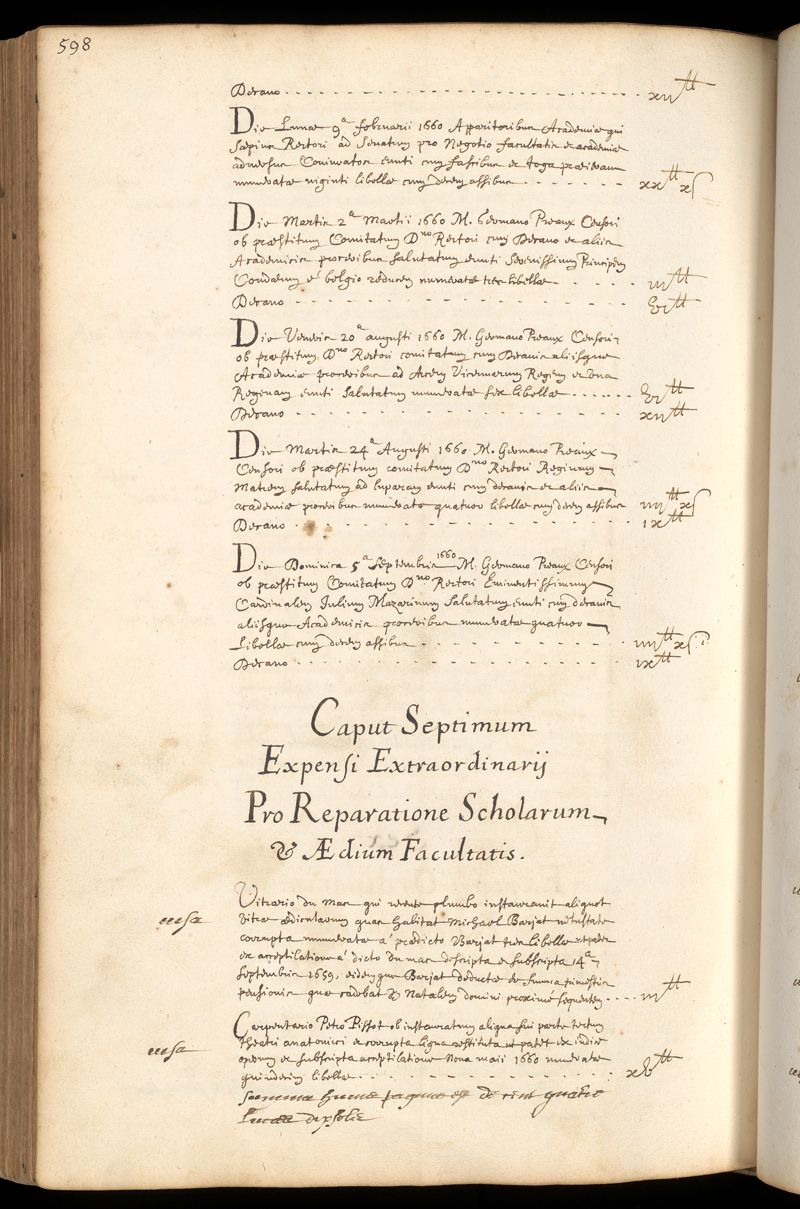 598
Decano xii tt
Die Lunæ 9a februarii 1660 Apparitoribus Academiæ qui
sæpius Rectori ad Senatum pro Negotio facultatis et academiæ
adversus eunti cum fascibus et toga præierant
numeratæ viginti libellæ cum decem assibus xx tt x s
Die Martis 2a Martii 1660 M. Germano Preaux Censori
ob præstitum Comitatum Dno Rectori cum Decano et aliis
Academicis proceribus salutatum eunti Serenissimum Principem
Condæum è belgio reducem numeratæ tres libellæ iii tt
Decano vi tt
Die Veneris 20a augusti 1660 M. Germano Preaux Censori
ob præstitum Dno Rectori comitatum cum Decanis aliisque
Academiæ proceribus ad Arcem Vicennarum Regem et una
Reginam eunti salutatum numeratæ sex libellæ vi tt
Decano xii tt
Die Martis 24a Augusti 1660 M. Germano Preaux
Censori ob præstitum comitatum Dno Rectori Reginam
Matrem salutatum ad luparam eunti cum decanis et aliis
academiæ proceribus numeratæ quatuor libellæ cum decem assibus iiii tt x s
Decano ix tt
Die Dominica 5a Septembris 1660 M. Germano Preaux Censori
ob præstitum Comitatum Dno Rectori Eminentissimum
Cardinalem Julium Mazarinum salutatum eunti cum decanis
aliisque Academicis proceribus numeratæ quatuor
Libellæ cum decem assibus iiii tt x s
Decano ix tt
Caput Septimum
Expensi Extraordinarij
Pro Reparatione Scholarum
& Ædium Facultatis.
Vitrario du Mas qui recente plumbo instauravit aliquot
vitra ædicularum quas habitat Michael Barjat vetustate
corrupta numeratæ a prædicto Barjat tres libellæ ut patet
ex acceptilatione a dicto du mas descripta et subscripta 14a
septembris 1659, eidemque Barjat deductæ de summa trimestris
pensionis quæ cadebat ad Natalem domini proximè sequentem iii tt
Carpentario Petro Pistot ob instauratum aliqua sui parte tectum
theatri anatomici et corrupta ligna restituta ut patet ex indice
operum et subscripta acceptilatione nona maii 1660 numeratæ
quindecim libellæ xv tt